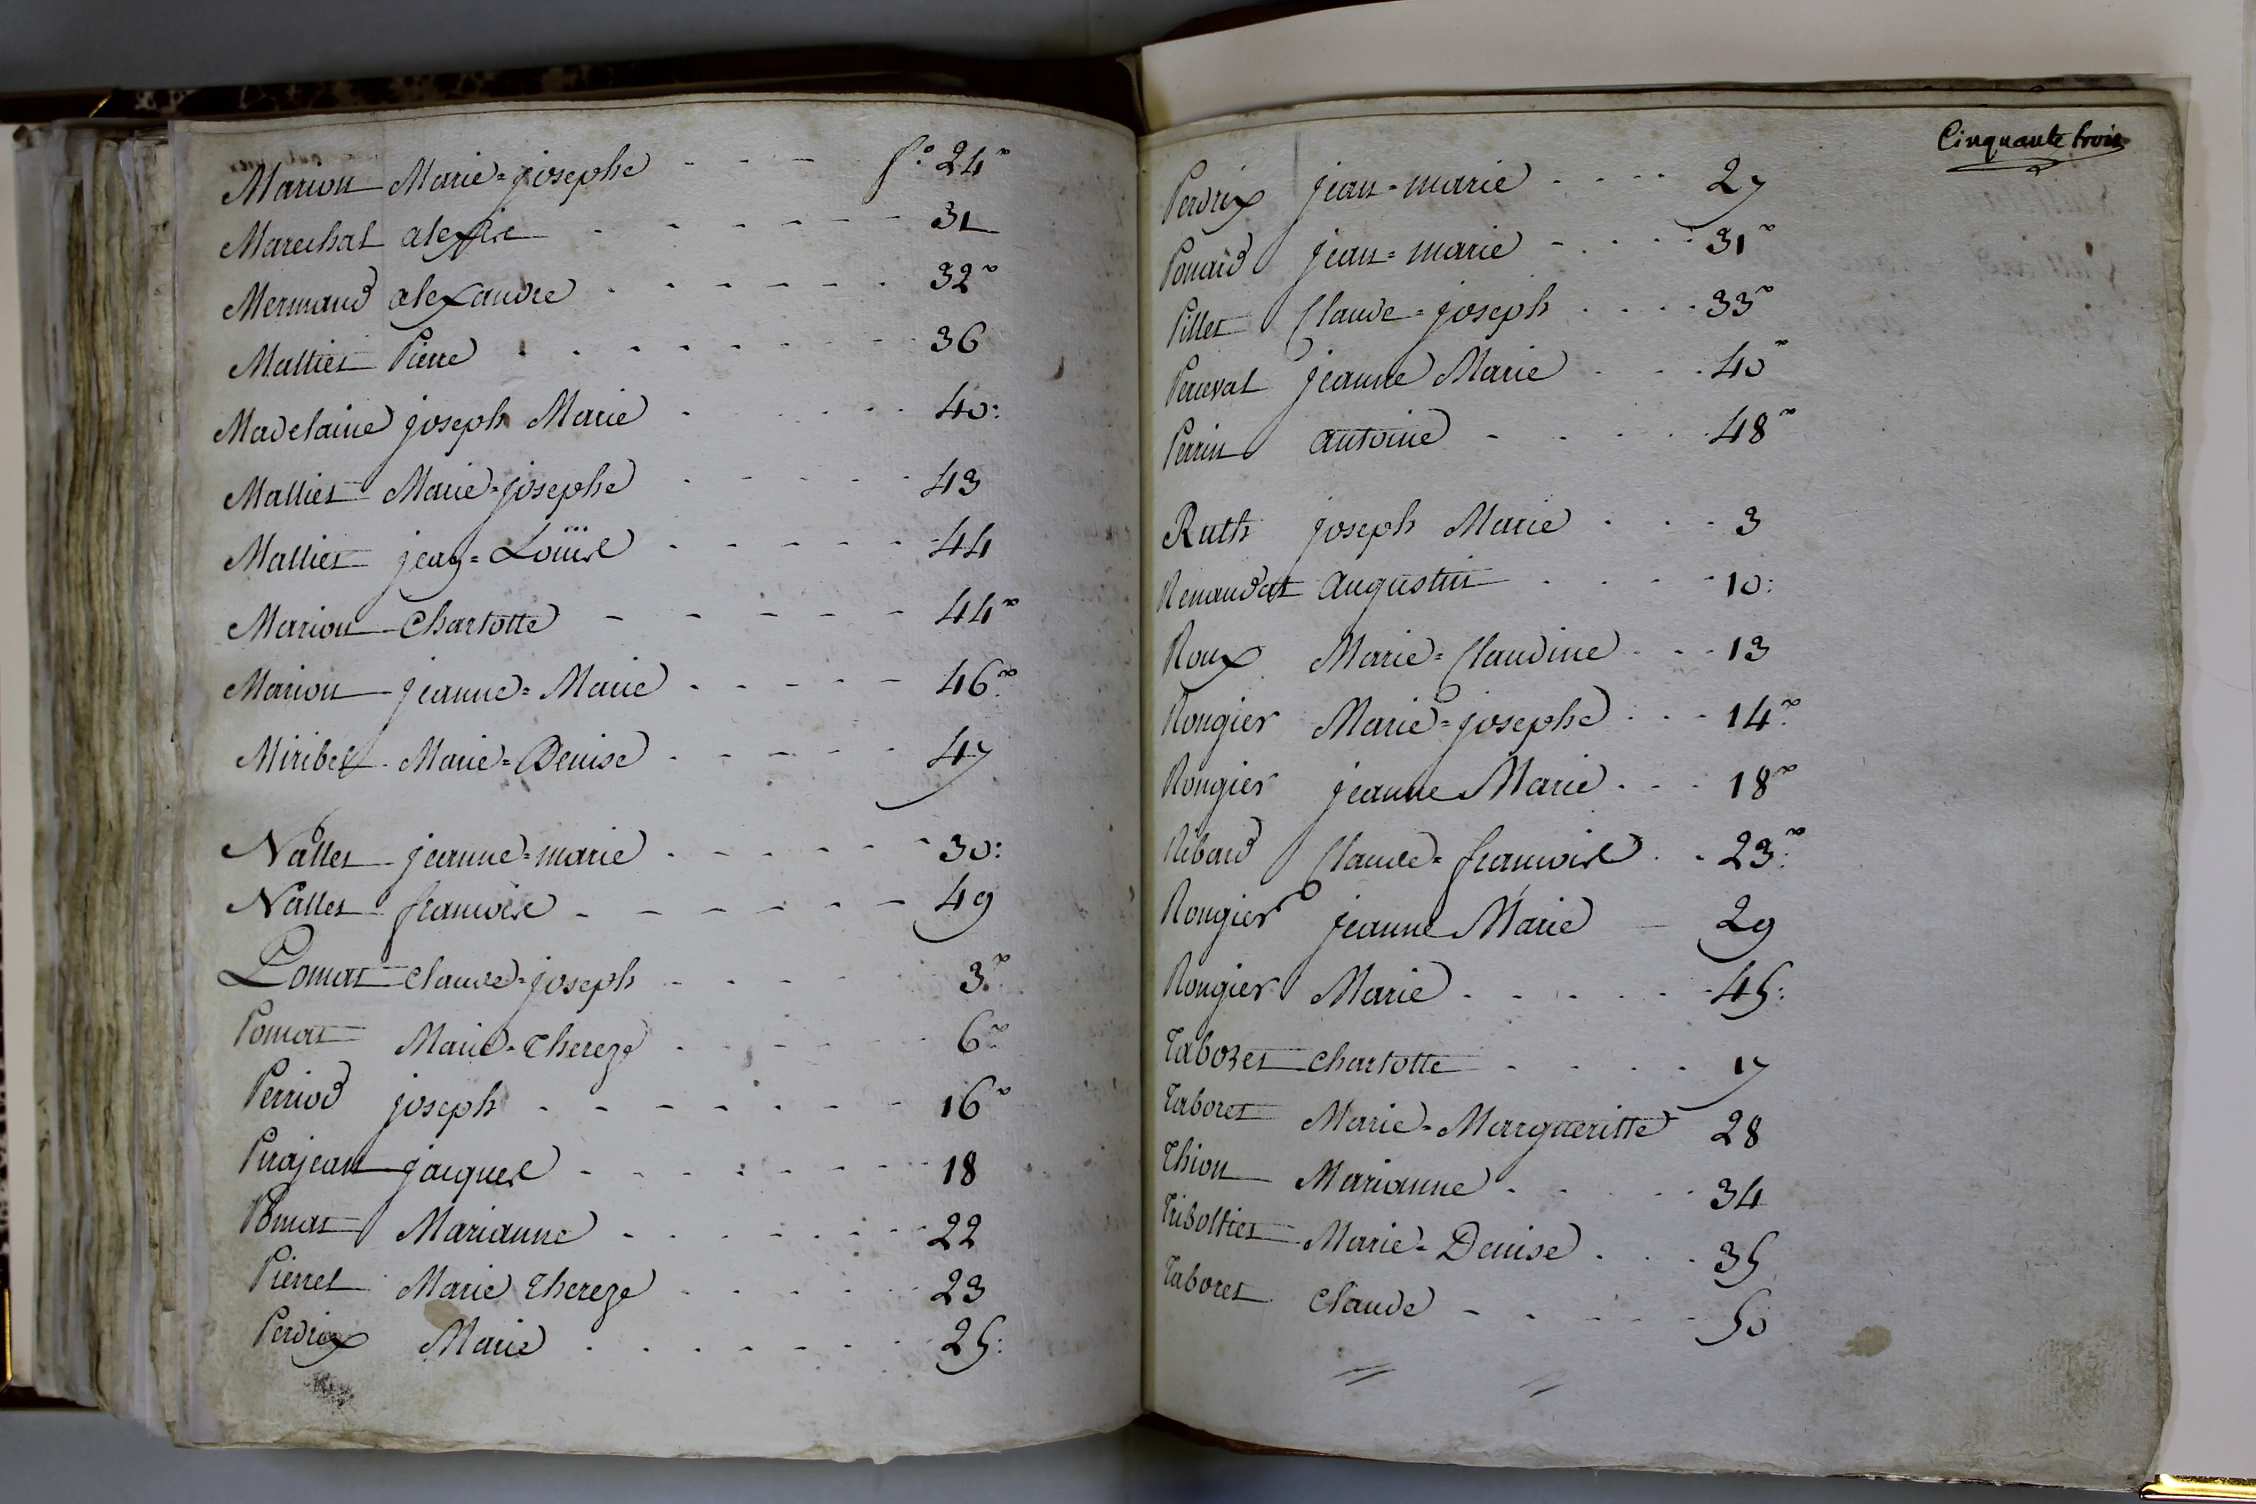 Marion Marie=josephe - - - f.o 24 vo
Marechal alexsie - - - - - - 31
Mermand alexandre - - - - - - 32 vo
Malliet Pierre - - - - - - - - 36
Madelaine joseph Marie - - - - - 40:
Malliet Marie=josephe - - - - - 43
Malliet jean=Louïse - - - - - - 44
Marion Charlotte - - - - - - 44 vo
Marion jeanne=Marie - - - - - 46 vo
Miribel Marie=Denise - - - - - 47
Nallet jeanne=marie - - - - - - 30:
Nallet francoise - - - - - - 49
Pomat Claude=joseph - - - - 3 vo
Pomat Marie=Thereze - - - - - - 6 vo
Perriod joseph - - - - - - - 16 vo
Pirajean jacques - - - - - - 18
Pomat Marianne - - - - - - - 22
Pierrel Marie Thereze - - - - - 23
Perdrix Marie - - - - - - - 25:
Cinquante trois
Perdrix jean=marie - - - - 27
Ponard jean=marie - - - - 31 vo
Pillet Claude=joseph - - - - 33 vo
Perceval jeanne Marie - - - 40 vo
Perrin antoine - - - - - 48 vo
Ruth joseph Marie - - - 3
Renaudat augustin - - - - 10:
Roux Marie=Claudine - - - 13
Rougier Marie=josephe - - - 14 vo
Rougier jeanne Marie - - - 18 vo
Ribard Claude=francoise - - 23 vo
Rougier jeanne Marie - 29
Rougier Marie - - - - - - 45:
Taboret Charlotte - - - - - 17
Taboret Marie=Margueritte 28
Thion Marianne - - - - - 34
Tribolliet Marie=Denise - - - 35
Taboret Claude - - - - - 50